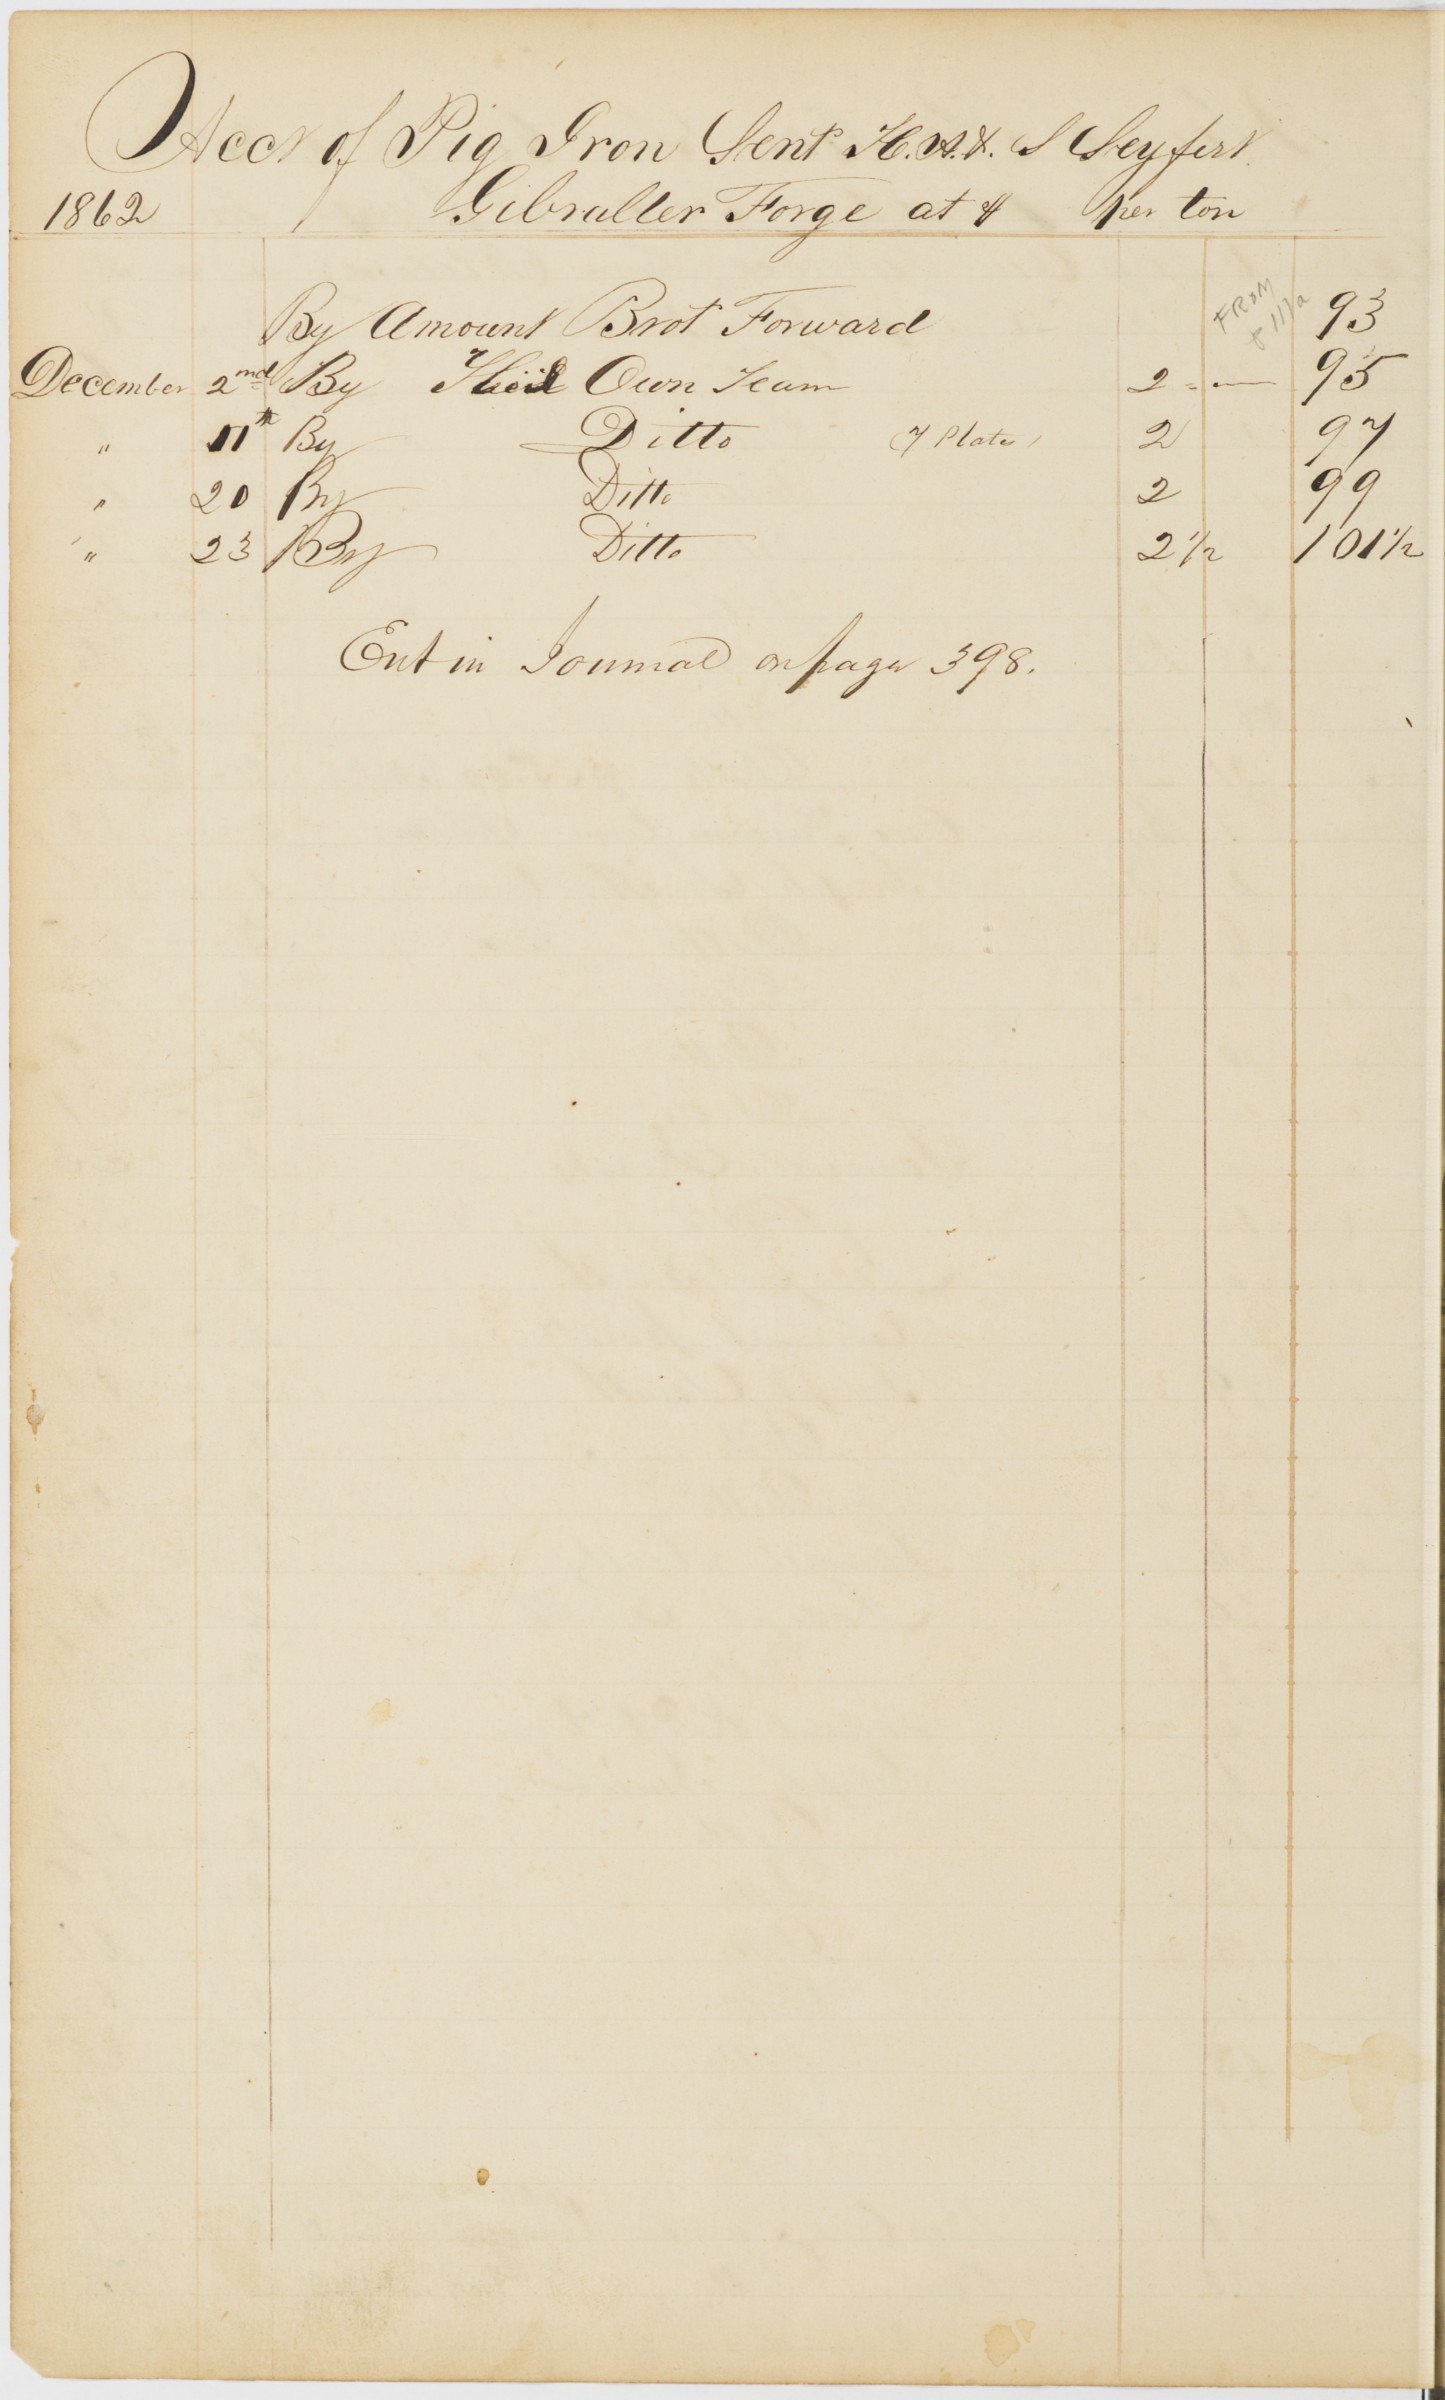 Acct of Pig Iron Sent H. A. & S Seyfert
1862 Gibralter Forge at $ per ton
By Amount Brot Forward 93
FROM
p 111a
December 2nd By Their Own Team 2 = — 95
" 11th By Ditto (7 Plate) 2 97
" 20 By Ditto 2 99
" 23 By Ditto 2 1/2 101 1/2
Ent in Journal on page 398.